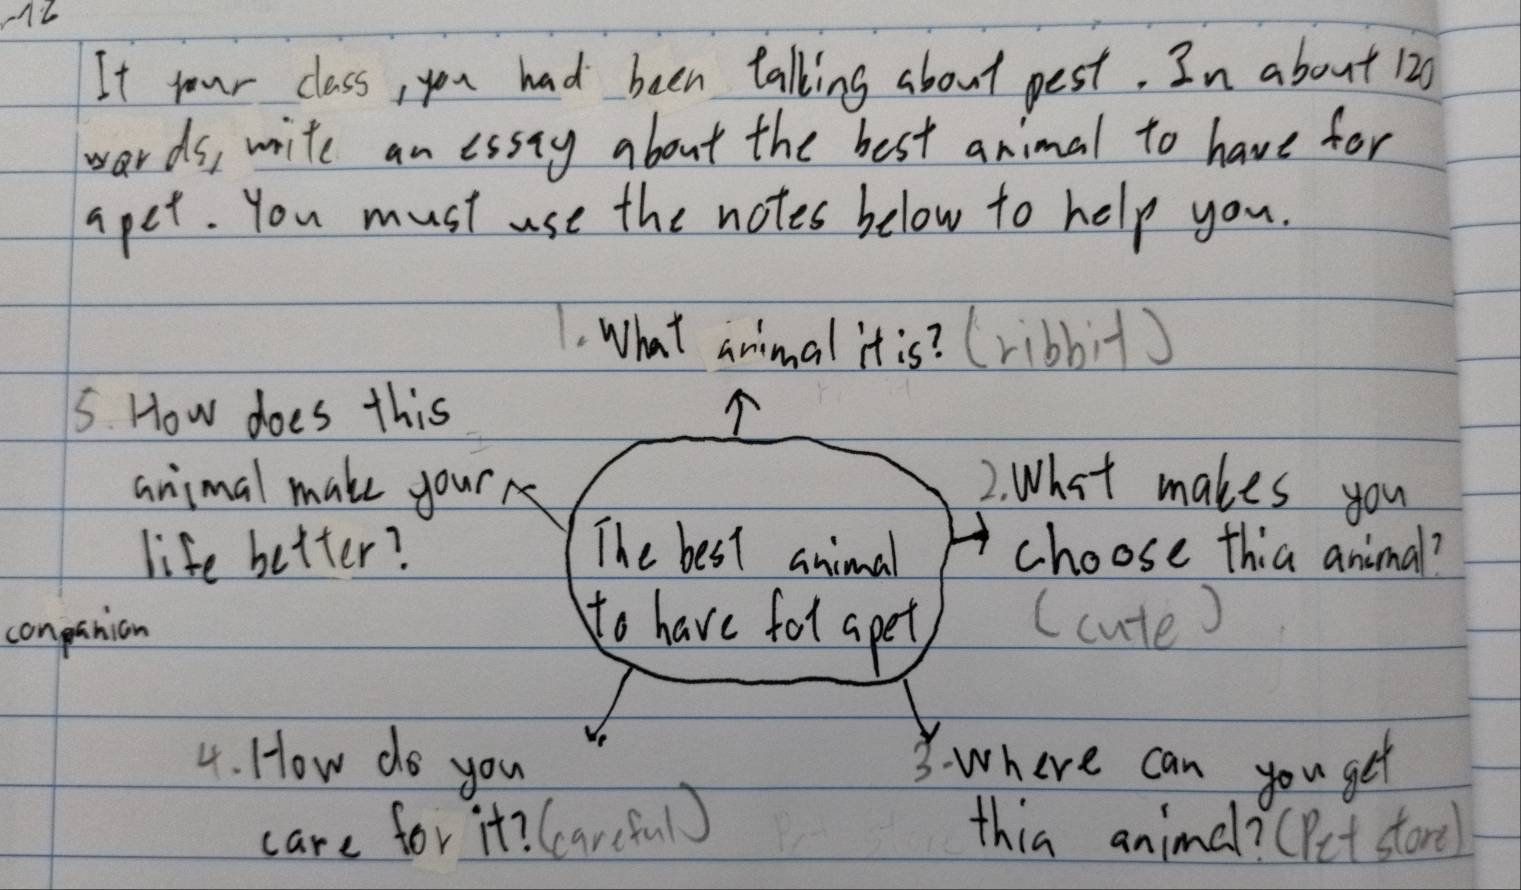 It your class, you had been talking about pest. In about 120
words, write an essay about the best animal to have for
a pet. You must use the notes below to help you.
1. What animal it is? (ribbit)
5. How does this
animal make your
life better?
companion
2. What makes you
choose thia animal?
(cute)
The best animal
to have fot a pet
4. How do you
care for it? (careful)
3. Where can you get
thia animal? (Pet store)